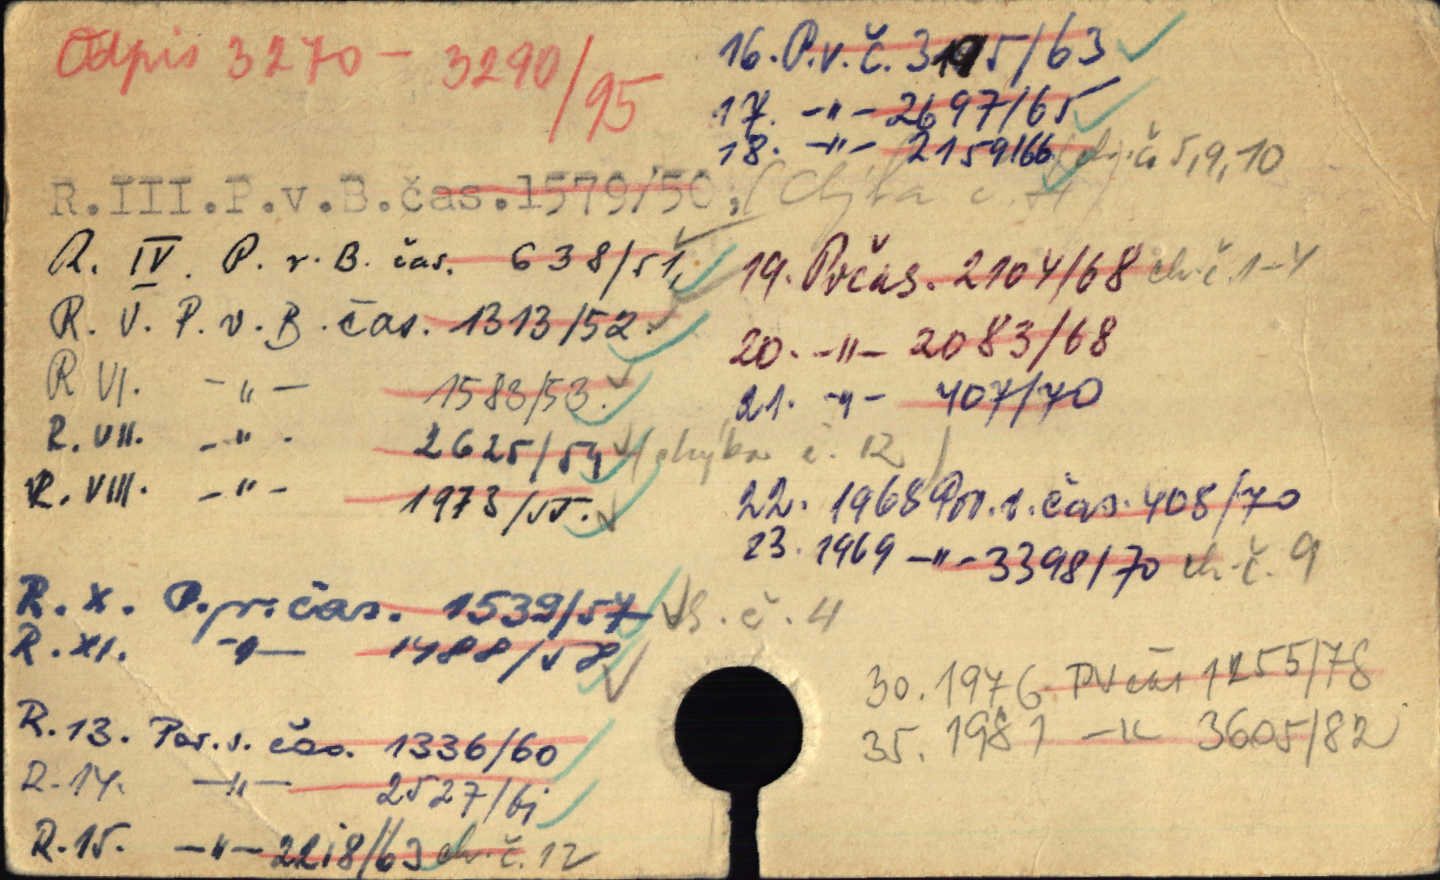 Odpis 3270 - 3290/95
R.III.P.v.B.čas.1579/50; (chýba č. 11)
R. IV. P. v. B. čas. 638/51,
R. V. P. v. B. čas. 1313/52.
R VI. -"- 1583/53.
R. VII. -"- 2625/54 (chýba č. 12)
R. VIII. -"- 1973/55.
R. X. P.pr. čas. 1539/57 ch. č. 4
R. XI. -"- 1488/58
R. 13. Por. s. čas. 1336/60
R. 14. -"- 2527/61
R. 15. -"- 2218/63 ch. č. 12
16. P. v. č. 3195/63
17. -"- 2697/65
18. -"- 2159/66 ch. č 5,9,10
19. Pvčas. 2104/68 ch. č. 1-4
20. -"- 2083/68
21. -"- 407/70
22. 1968 čas. 408/70
23. 1969 -"- 3398/70 ch. č. 9
30. 1976 PV čas 1255/78
35. 1981 -"- 3605/82